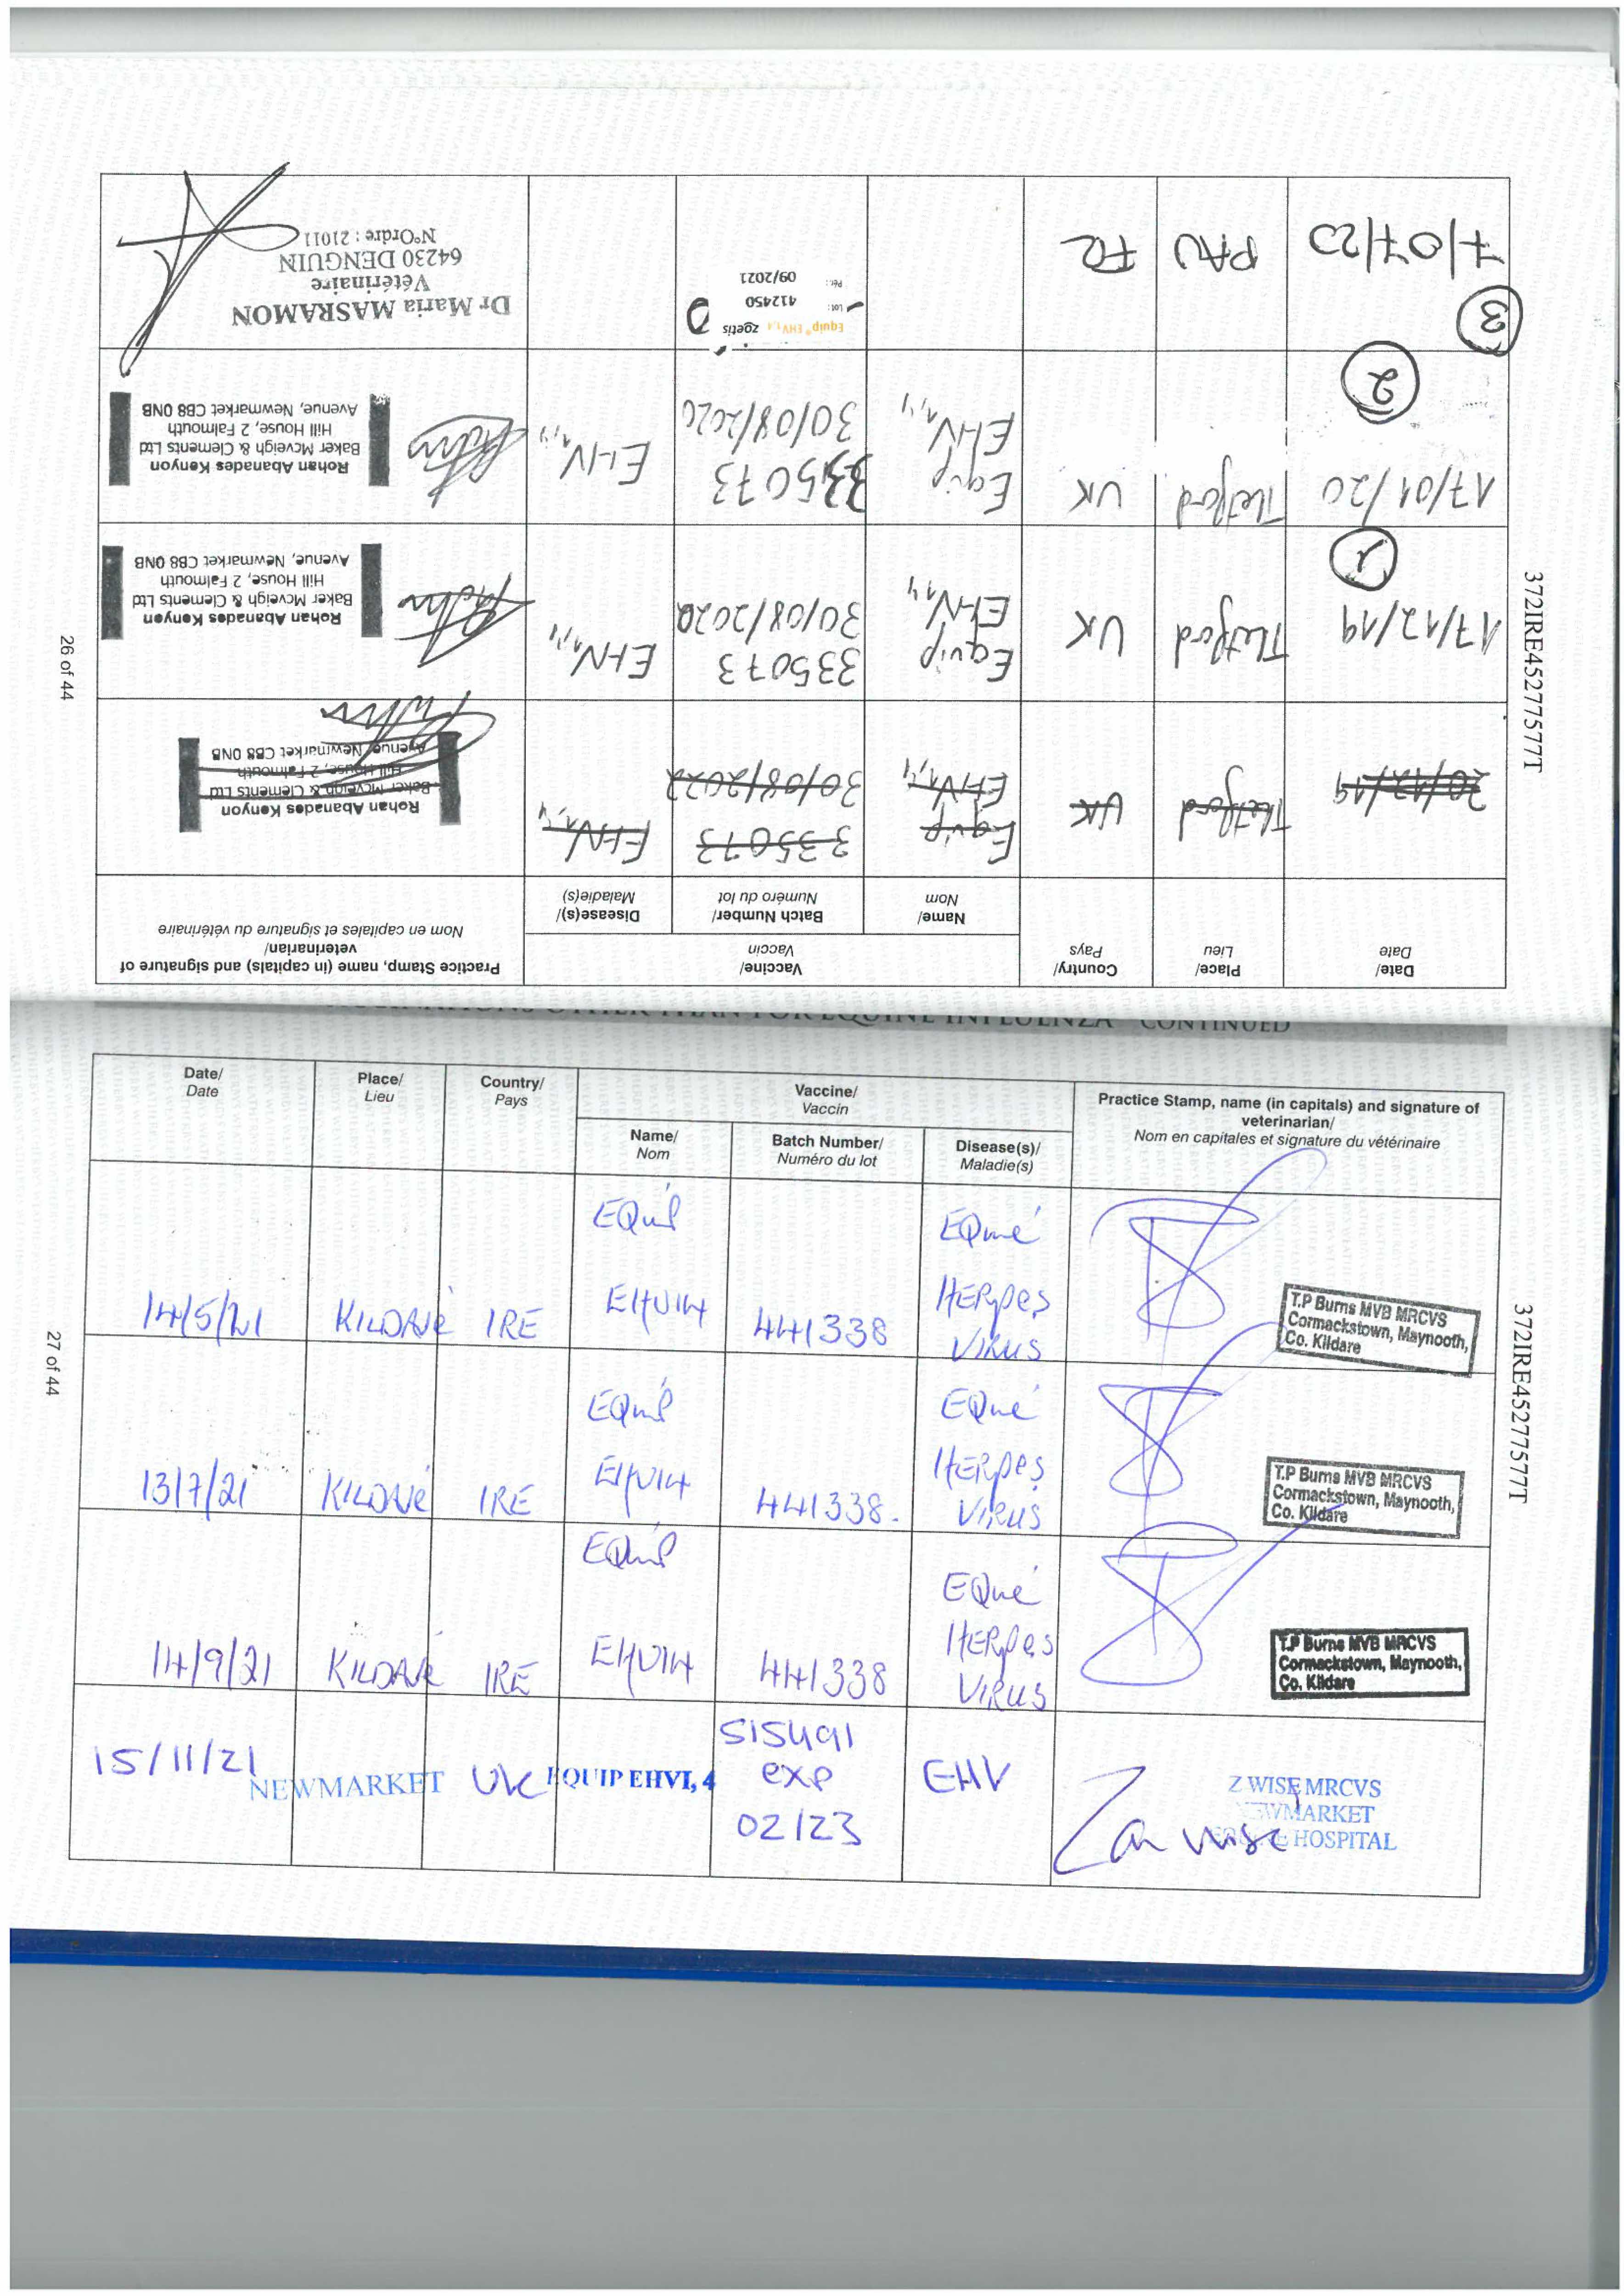 26 of 44
372IRE45277577T
Date/ Place/ Country/ Vaccine/ Practice Stamp, name (in capitals) and signature of
Date Lieu Pays Vaccin veterinarian/
Name/ Batch Number/ Disease(s)/ Nom en capitales et signature du vétérinaire
Nom Numéro du lot Maladie(s)
20/12/19 Thetford UK Equip 335073 EHV1,4
EHV1,4 30/08/2022
Rohan Abanades Kenyon
Baker Mcveigh & Clements Ltd
Hill House, 2 Falmouth
Avenue, Newmarket CB8 0NB
17/12/19 Thetford UK Equip 335073 EHV1,4
1 EHV1,4 30/08/2020
Rohan Abanades Kenyon
Baker Mcveigh & Clements Ltd
Hill House, 2 Falmouth
Avenue, Newmarket CB8 0NB
17/01/20 Thetford UK Equip 335073 EHV1,4
2 EHV1,4 30/08/2020
Rohan Abanades Kenyon
Baker Mcveigh & Clements Ltd
Hill House, 2 Falmouth
Avenue, Newmarket CB8 0NB
3
7/07/20 PAU FR
Equip® EHV1,4 zoetis
Lot: 412450
Pér.: 09/2021
Dr Maria MASRAMON
Vétérinaire
64230 DENGUIN
N°Ordre : 21011
VACCINATIONS OTHER THAN FOR EQUINE INFLUENZA CONTINUED
Date/ Place/ Country/ Vaccine/ Practice Stamp, name (in capitals) and signature of
Date Lieu Pays Vaccin veterinarian/
Name/ Batch Number/ Disease(s)/ Nom en capitales et signature du vétérinaire
Nom Numéro du lot Maladie(s)
EQuip EQine
14/5/21 KILDARe IRE EHV14 441338 HERpes
VIRUS
T.P Burns MVB MRCVS
Cormackstown, Maynooth,
Co. Kildare
EQuip EQine
13/7/21 KILDARe IRE EHV14 441338. HERpes
VIRUS
T.P Burns MVB MRCVS
Cormackstown, Maynooth,
Co. Kildare
EQuip EQine
14/9/21 KILDARe IRE EHV14 441338 HERpes
VIRUS
T.P Burns MVB MRCVS
Cormackstown, Maynooth,
Co. Kildare
15/11/21 NEWMARKET UK EQUIP EHV1, 4 515491 EHV
exp
02/23
Z WISE MRCVS
NEWMARKET
EQUINE HOSPITAL
Zoe Wise
27 of 44
372IRE45277577T